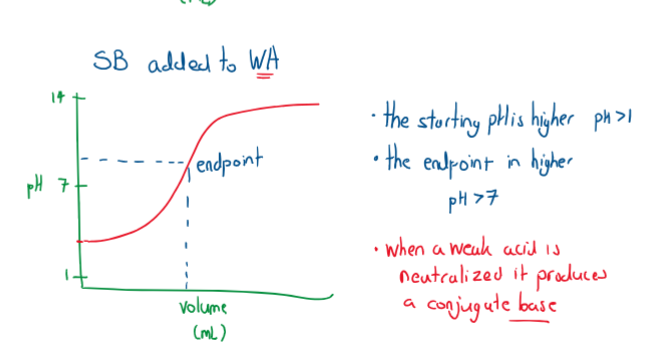 (mL)
SB added to WA
14
endpoint
pH 7
1
volume
(mL)
• the starting pH is higher pH >1
• the endpoint in higher
pH >7
• when a weak acid is
neutralized it produces
a conjugate base